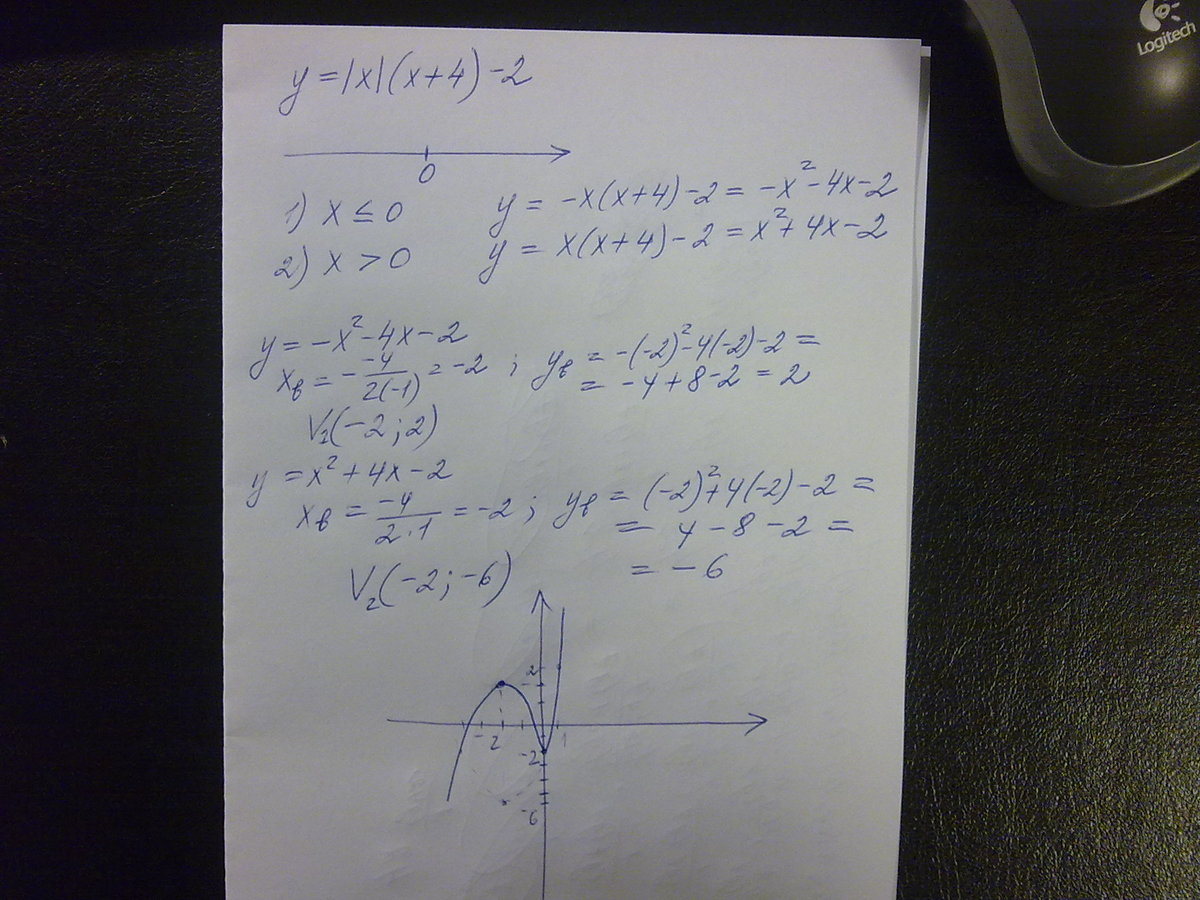 Logitech
y = |x|(x+4) - 2
0
1) x ≤ 0 y = -x(x+4) - 2 = -x² - 4x - 2
2) x > 0 y = x(x+4) - 2 = x² + 4x - 2
y = -x² - 4x - 2
xв = - -4/2(-1) = -2 ; yв = -(-2)² - 4(-2) - 2 =
= -4 + 8 - 2 = 2
V₁(-2 ; 2)
y = x² + 4x - 2
xв = -4/2·1 = -2 ; yв = (-2)² + 4(-2) - 2 =
= 4 - 8 - 2 =
= -6
V₂(-2 ; -6)
2
-2 1
-2
-6